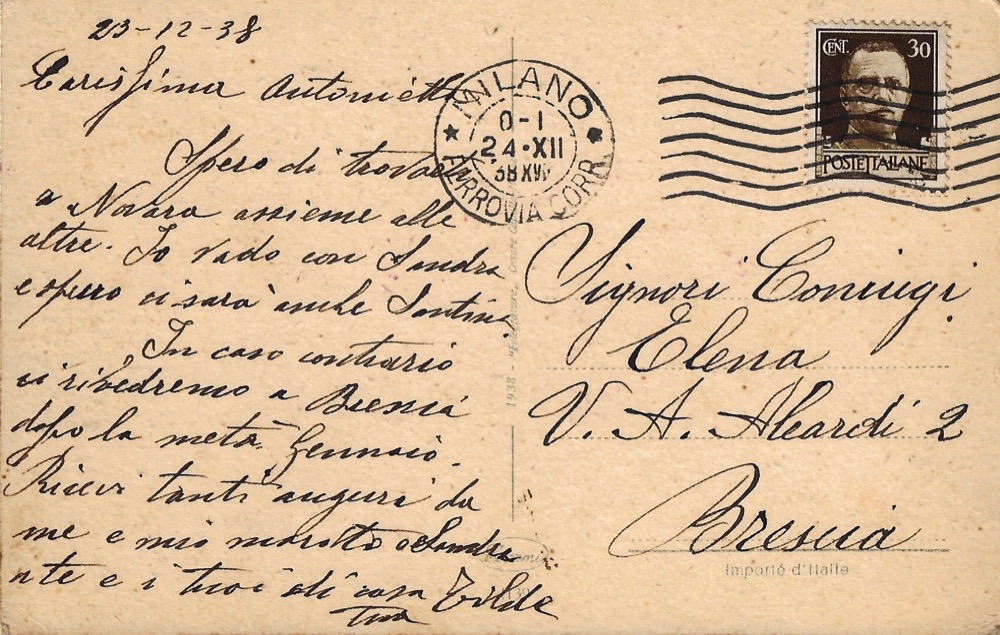 23-12-38
Carissima Antoniett
Spero di trovarti
a Novara assieme alle
altre. Io vado con Sandra
e spero ci sarà anche Santina
In caso contrario
ci rivedremo a Brescia
dopo la metà Gennaio.
Ricevi tanti auguri da
me e mio marito a Sandra
nte e i tuoi di casa Tilde
Tua
MILANO
0-1
24·XII
38 XVII
FERROVIA CORR.
CENT. 30
POSTE ITALIANE
Signori Coniugi
Elena
V. A. Aleardi 2
Brescia
Importé d'Italie
1938 -